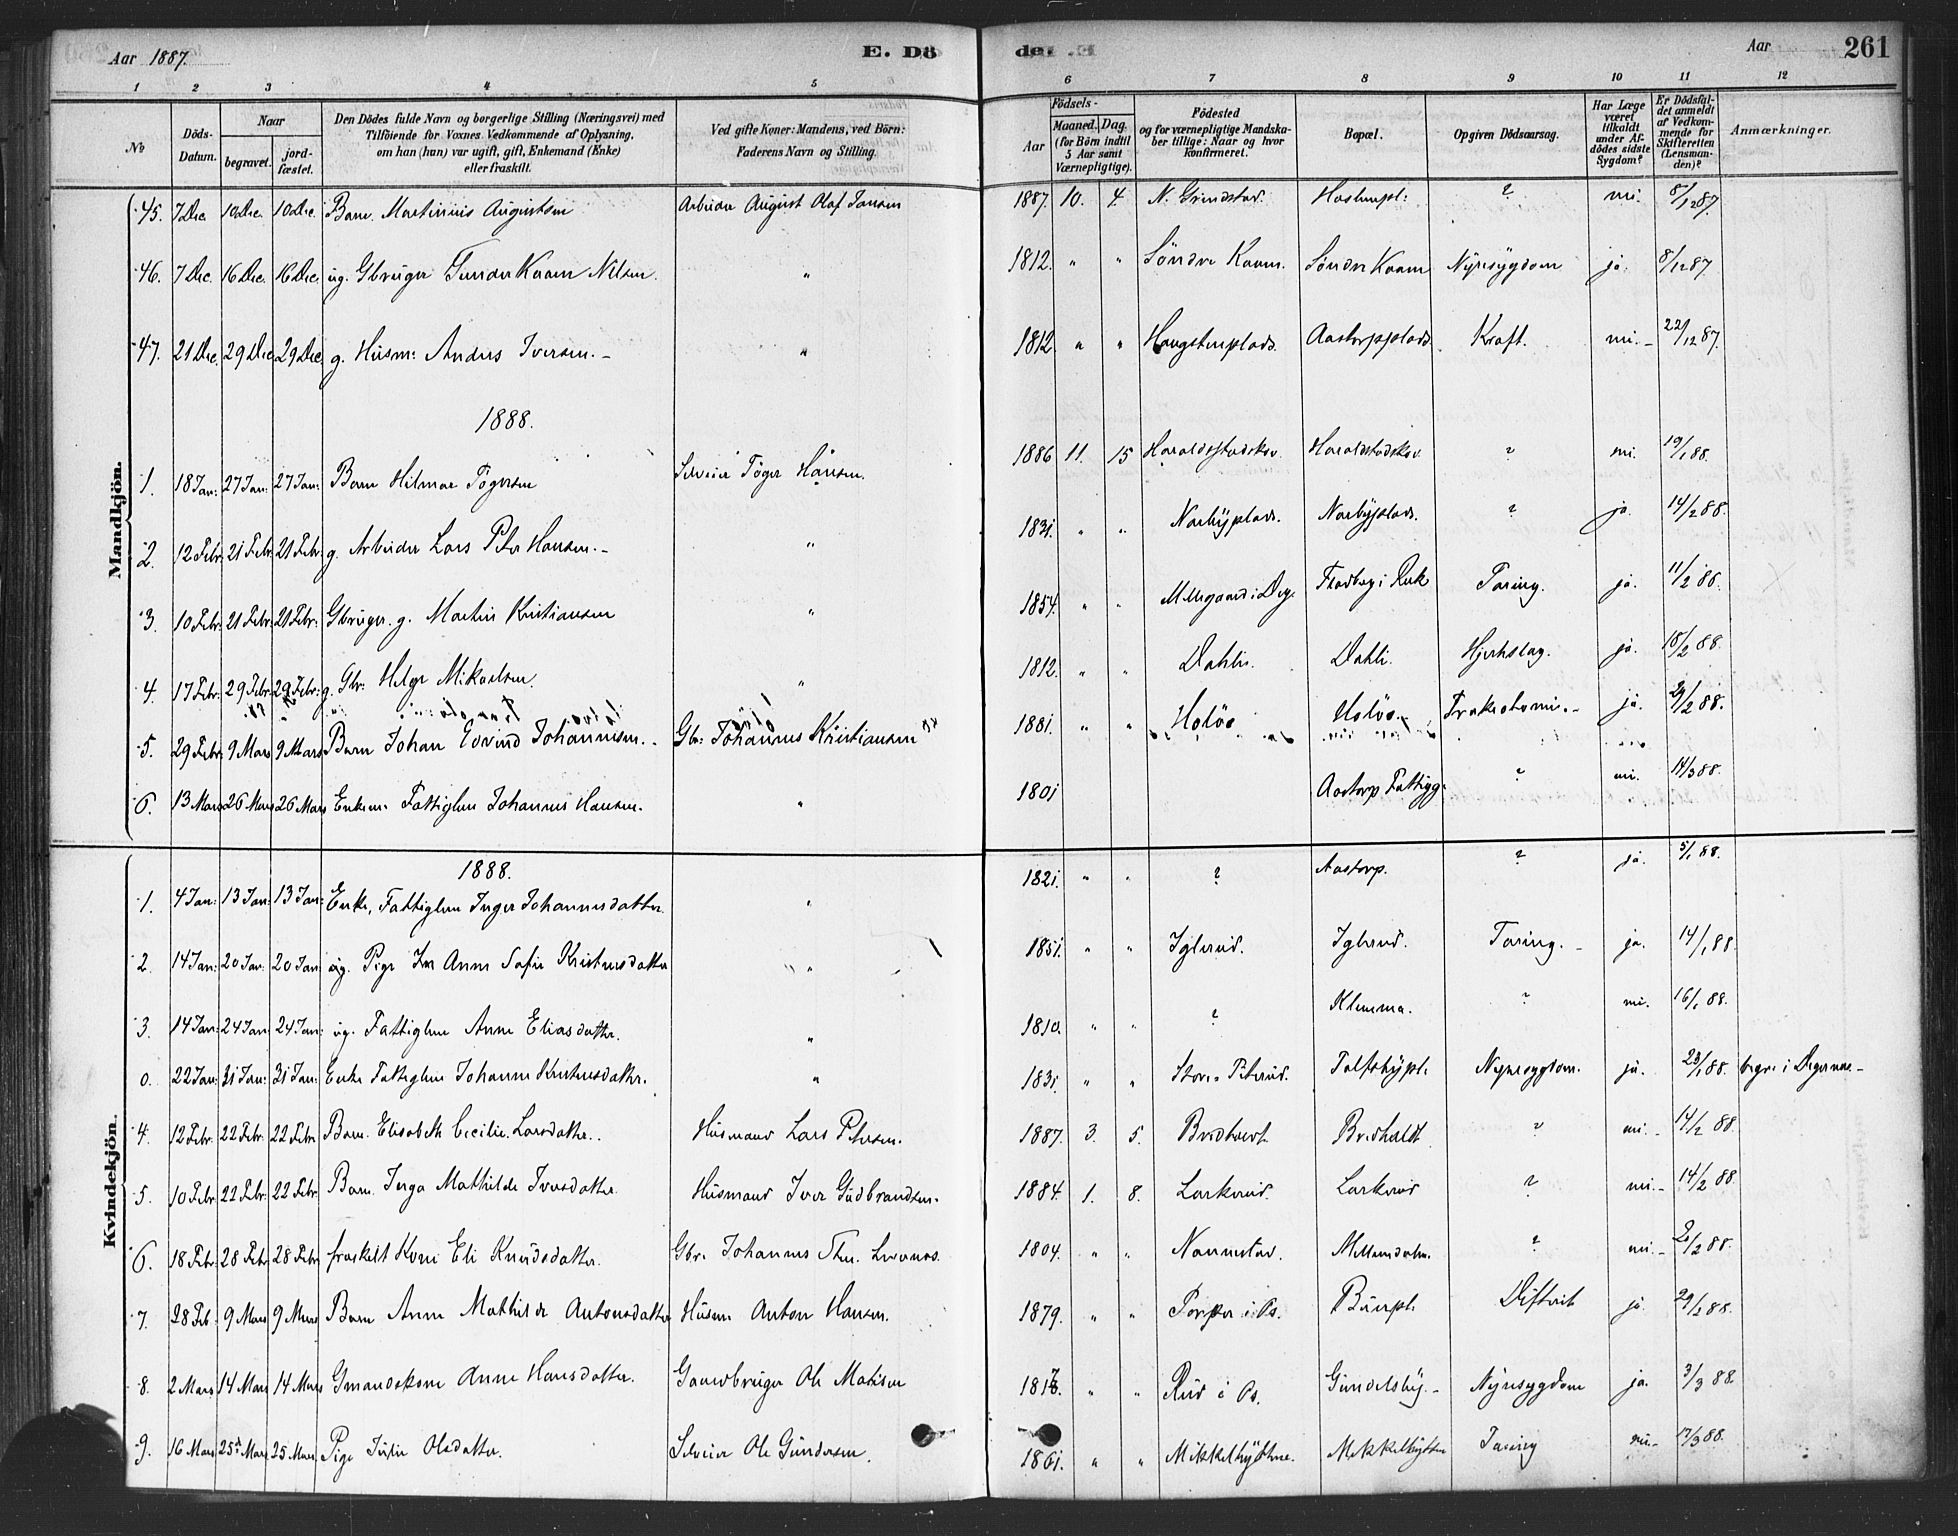 Aar 1887. E. Dö de. Aar 261
1 2 3 4 5 6 7 8 9 10 11 12
No Döds-Datum. Naar begravet. jord-fæstet. Den Dödes fulde Navn og borgerlige Stilling (Næringsvei) med Tilföiende for Voxnes Vedkommende af Oplysning, om han (hun) var ugift, gift, Enkemand (Enke) eller fraskilt. Ved gifte Koner: Mandens, ved Börn: Faderens Navn og Stilling. Födsels- Aar Maaned. Dag. (for Börn indtil 5 Aar samt Værnepligtige). Födested og for værnepligtige Mandskaber tillige: Naar og hvor konfirmeret. Bopæl. Opgiven Dödsaarsag. Har Læge været tilkaldt under Afdödes sidste Sygdom? Er Dödsfaldet anmeldt af Vedkommende for Skifteretten (Lensmanden)? Anmærkninger.
Mandkjön.
45. 7 Dec. 10 Dec. 10 Dec. Barn Martinius Augustsen Arbeider August Olaf Jansen 1887. 10. 4. N. Grindstad. ? 8/12 87.
46. 7 Dec. 16 Dec. 16 Dec. ug. Gbruger Gunder Kaam Nilsen. " 1812. " " Söndre Kaam. Söndre Kaam Nyresygdom ja. 8/12 87.
47. 21 Dec. 29 Dec. 29 Dec. g. Husm: Anders Iversen. " 1812. " " Haugstenplads. Aastorpplads. Kræft. 22/12 87.
1888.
1. 18 Jan: 27 Jan: 27 Jan: Barn Hilmar Tögersen Selveier Töger Hansen. 1886 11. 15 Haraldstadskov Haraldstadskov ? 19/1 88.
2. 12 Febr. 21 Febr. 21 Febr. g. Arbeider Lars Peter Hansen. " 1831. " " Narbyplads. Narbyplads. ? ja. 14/2 88.
3. 10 Febr. 21 Febr. 21 Febr. Gbruger. g. Martin Kristiansen " 1854. " " Tæring. ja. 11/2 88.
4. 17 Febr. 29 Febr. 29 Febr. g. Gbr: Helge Mikaelsen. " 1812. " " Dahli. Dahli. Hjerteslag. ja. 18/2 88.
5. 29 Febr. 9 Mars 9 Mars Barn Johan Edvind Johannesen. Gbr: Johannes Kristiansen 1881. " " Holös Holös. ja. 29/2 88.
6. 13 Mars 26 Mars 26 Mars Enkem. Fattiglem Johannes Hansen. " 1801 Aastorp Fattigg. ? 14/3 88.
Kvindekjön.
1888.
1. 4 Jan: 13 Jan: 13 Jan: Enke, Fattiglem Inger Johannesdatter. " 1821. " " ? Aastorp. ? ja. 5/1 88.
2. 14 Jan: 20 Jan: 20 Jan ug. Pige Anne Sofie Kristensdatter " 1851. " " Iglerud. Iglerud. Tæring. ja. 14/1 88.
3. 14 Jan: 24 Jan: 24 Jan: ug. Fattiglem Anne Eliasdatter. " 1810. " " ? Klemma. ? 16/1 88.
0. 22 Jan: 31 Jan: 31 Jan: Enke Fattiglem Johanne Kristensdatter. " 1831. " " Store Nyresygdom. ja. 23/1 88.
4. 12 Febr. 22 Febr. 22 Febr. Barn. Elisabeth Cecilie Larsdatter. Husmand Lars Petersen. 1887. 3. 5. ? 14/2 88.
5. 10 Febr. 22 Febr. 22 Febr. Barn. Inga Mathilde Iversdatter. Husmand Iver Gudbrandsen. 1884. 1. 8. Larkerud. Larkerud ? 14/2 88.
6. 18 Febr. 28 Febr. 28 Febr. fraskilt Kone Eli Knudsdatter. Gbr. Johannes 1804. " " Nannestad. ?
7. 28 Feb. 9 Mars 9 Mars Barn Anne Mathilde Antonsdatter Husm: Anton Hansen. 1879. " " Difterit ja 29/2 88.
8. 2 Mars 14 Mars 14 Mars Gmandskone Anne Hansdatter. Gaardbruger Ole Matisen " " Rud i As. Gundelsby. Nyresygdom ja. 3/3 88.
9. 16 Mars 25 Mars 25 Mars Pige Julie Olsdatter. Selveier Ole Gundersen. 1861. " " Tæring 17/3 88.